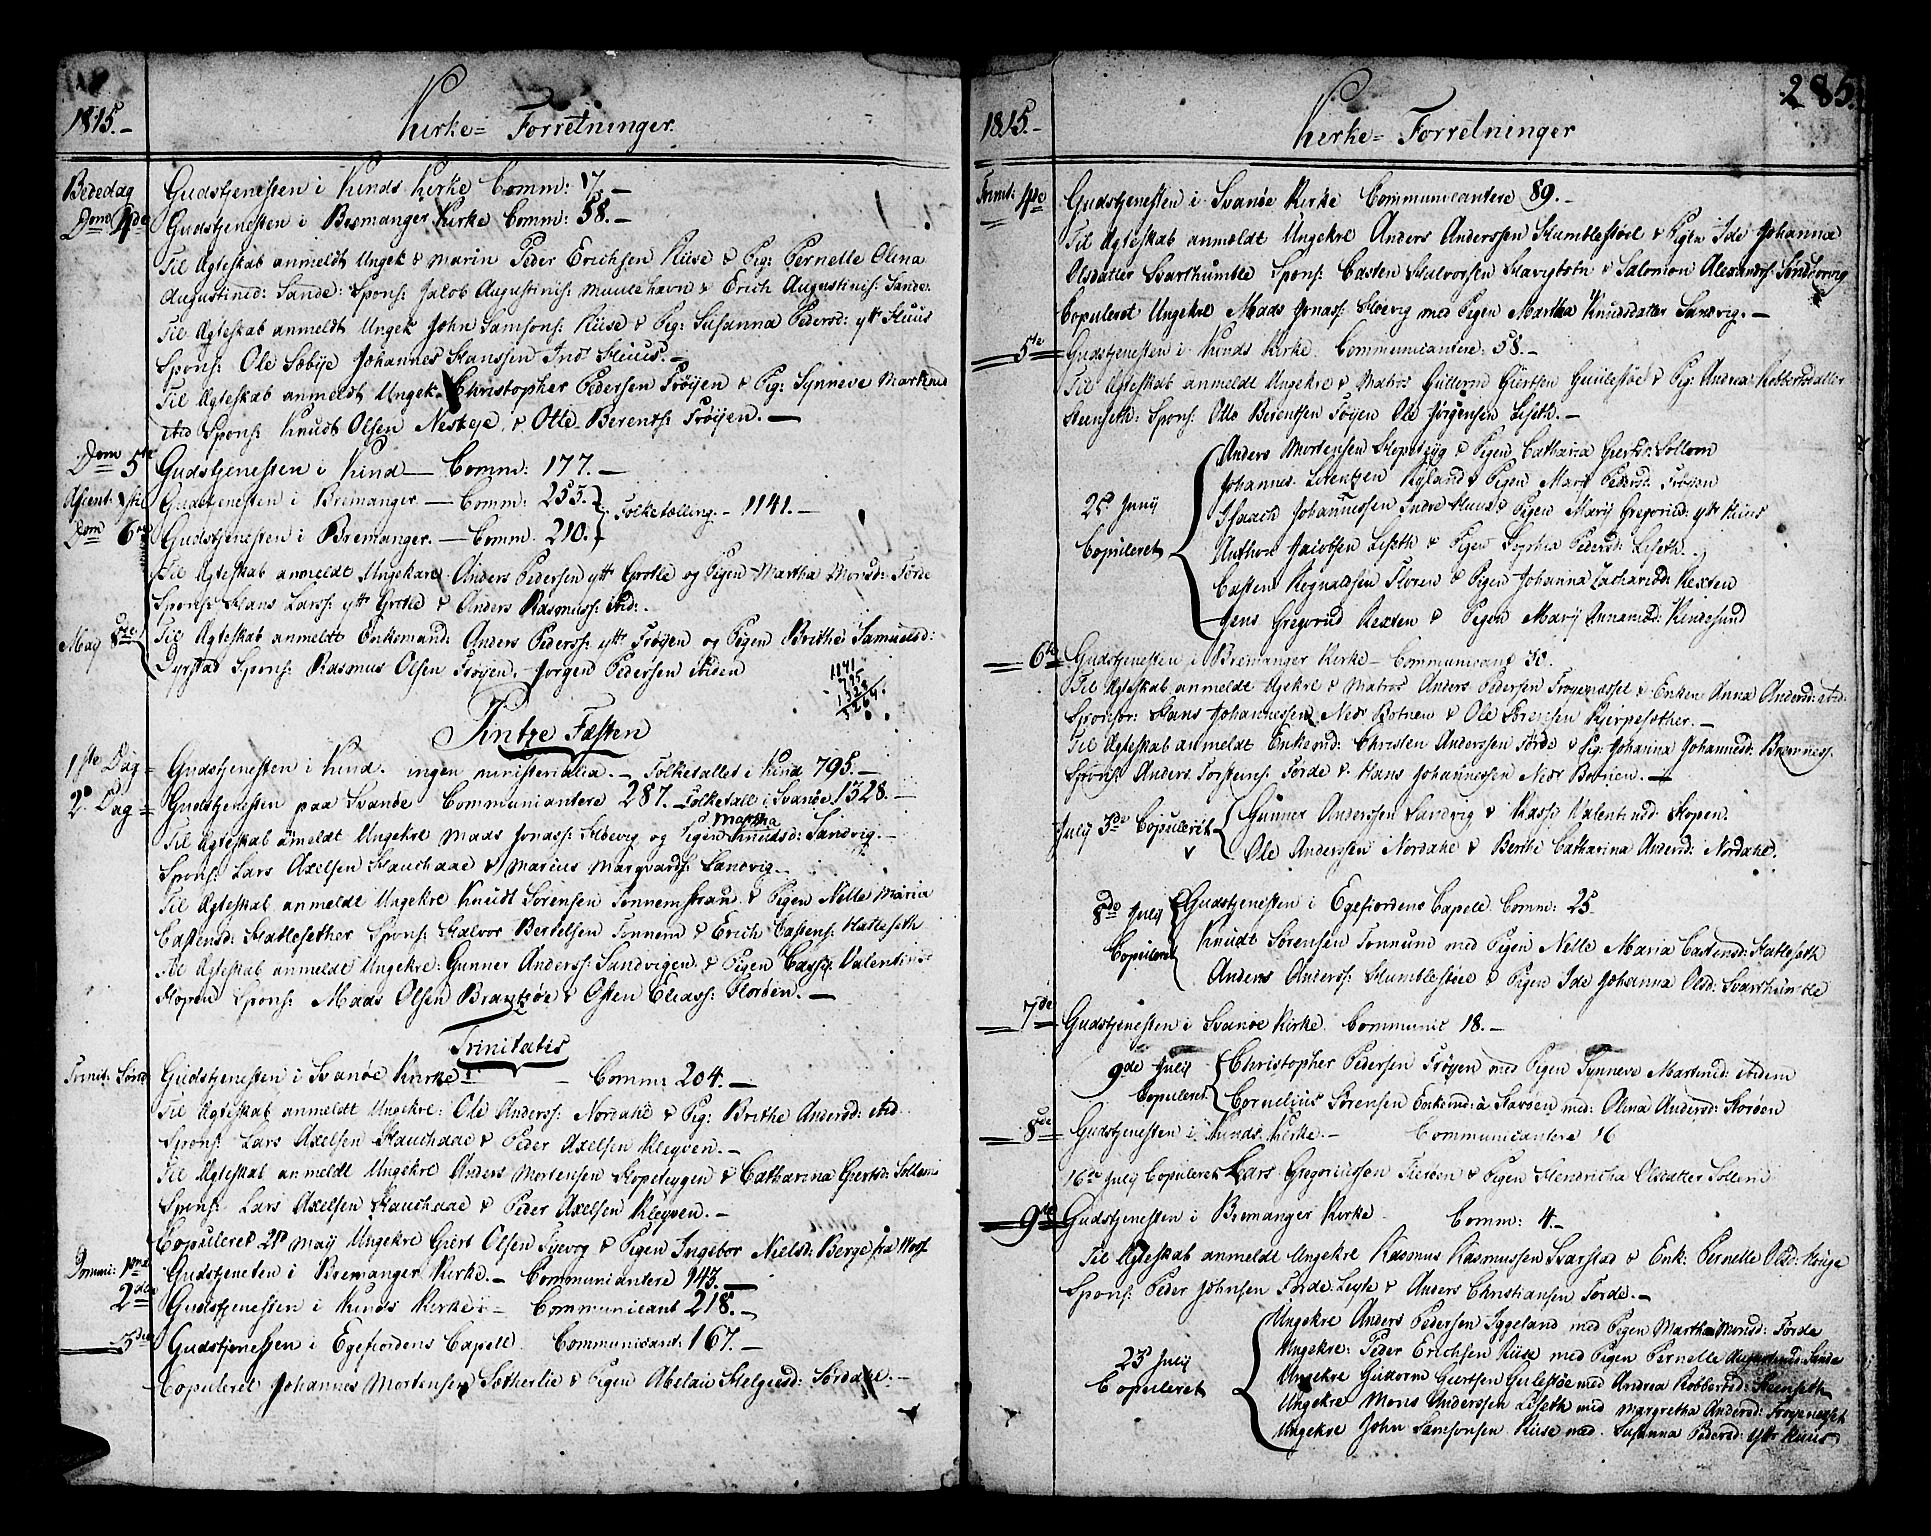 1815.-
Kirke= Forretninger.
Bededag Gudstjenesten i Kinds Kirke Comm: 17.-
Dom 4de Gudstjenesten i Bremanger Kirke Comm: 58.-
Til Ægteskab anmeldt Ungek & Marin Peder Erichsen Kuse & Pig: Pernelle Olena
Augustined: Sande: Spons: Jacob Augustinis: Mulehavn & Erich Augustinis: Sande.
Til Ægteskab anmeldt Ungek John Samsons: Kuse & Pig: Susanna Pedersd: ytt Huus
Spons: Ole Johannes Hanssen Huus.-
Til Ægteskab anmeldt Ungek. Christopher Pedersen Frøyen & Pig: Synneve Martind
ibid Spons: Knudt Olsen & Otte Berents: Frøyen.-
Dom 5te Gudstjenesten i Kind - Comm: 177.-
Gudstjenesten i Bremanger - Comm: 253.
Folketælling - 1141.-
Dom 6te Gudstjenesten i Bremanger. - Comm. 210.
Til Ægteskab anmeldt Ungekarl Anders Pedersen ytt Grotle og Pigen Martha Monsd: Førde
Spons: Hans Larss: ytt Grotle & Anders Rasmuss: ibid:.
May 8de Til Ægteskab anmeldt Enkemand Anders Peders: ytt Frøyen og Pigen Brithe Samuelsd:
Dyrstad Spons: Rasmus Olsen Frøyen. Jørgen Pedersen ibidem
1141
795
1328
Pintze Fæsten
1ste Dag Gudstjenesten i Kind. ingen ministerialia.- Folketallet i Kind 795.-
2d Dag Gudstjenesten paa Svanøe Communicantere 287.- Folketall i Svanøe 1328.-
Martha
Til Ægteskab anmeldt Ungekrl Mads Jonass: og Pigen Knudsd: Sandvig.-
Spons: Lars Axelsen & Marius Marqvards: Sandvig.-
Til Ægteskab anmeldt Ungekre Knudt Sørensen & Pigen Nelle Maria
Castensd: Hatlesether Spons: Halvor Bertelsen & Erich Castens: Hatleseth
Til Ægteskab anmeldt Ungekre: Gunner Anderss: Sandvigen & Pigen Valentinsd
Hopen Spons: Mads Olsen & Osten Eliass: Florøen.-
Trinitatis
Trinit: Sønd Gudstjenesten i Svanøe Kirke - Comm: 204.-
Til Ægteskab anmeldt Ungekre: Ole Anderss: Nordahl & Pig: Brithe Andersd: ibid.
Spons: Lars Axelsen & Peder Axelsen Kleyven.-
Til Ægteskab anmeldt Ungekre Anders Mortensen & Catharina Giertsd:
Spons: Lars Axelsen & Peder Axelsen Kleyven.-
Copuleret 21 May Ungekre Giert Olsen & Pigen Ingebor Nielsd: Berge fra
Domini: 1ma Gudstjeneten i Bremanger Kirke.- Communicantere 143.-
2den Gudstjenesten i Kinds Kirke - Communicant 218.-
3die Gudstjenesten i Egefiordens Capell. Communicant: 167.-
Copuleret Johannes Mortensen & Pigen Helgesd:
285.
1815.-
Kirke= Forretninger
Trinit: 4de Gudstjenesten i Svanøe Kirke Communicantere 89.-
Til Ægteskab anmeldt Ungekre Anders Anderssen Humblestøel & Pigen Ide Johanna
Olsdatter Svarthumble Spons: Casten Halvorsen & Salomon Alexands:
Copuleret Ungekre Mads Jonas: med Pigen Martha Knudsdatter Sandvig.-
5te Gudstjenesten i Kinds Kirke Communicantere: 58.-
Til Ægteskab anmeldt Ungekre & Matros Guttorm Giertsen & Pig: Andrea Robbertsdatter
Steenseth: Spons: Otto Berentsen Føyen Ole Jørgensen Liseth.-
25d Junij Copuleret
Anders Mortensen & Pigen Catharia
Johannes Lorentzen & Pigen Mary Pedersd: Frøyen
Isaach Johannessen Indre Huus & Pigen Marij Gregoriid: ytt Huus
Jacobsen Liseth & Pigen Sophia Pedersd: Liseth.
Casten Rognaldsen Floren & Pigen Johanna Zachariid: Rexten
Jens Gregorius Rexten & Pigen Marij Kindesund
6te Gudstjenesten i Bremanger Kirke - Communicant 50.
Til Ægteskab anmeldt Ugekre & Matros Anders Pedersen & Enken Anna Andersd: ibid:
Sponsor: Hans Johannessen Nedr Botnen & Ole Sørensen
Til Ægteskab anmeldt Enkemd: Christen Anderssen Førde & Pig: Johanna Johannesd:
Spons: Anders Førde & Hans Johannessen Nedr Botnen.-
July 3de Copuleret
Gunner Anderssen Sandvig & Valentinsd: Hopen.
Ole Anderssen Nordahl & Berthe Catharina Andersd: Nordahl.
8de July Copuleret
Gudstjenesten i Egefiordens Capell. Comm: 25
Knudt Sørensen med Pigen Nelle Maria Castensd: Hatleseth
Anders Anderss: Humblestøel & Pigen Ide Johanna Olsd: Svarthumble
7de Gudstjenesten i Svanøe Kirke. Communic 18.-
9de July Copuleret
Christopher Pedersen Frøyen med Pigen Synneve Martinsd: ibidem
Cornelius Sørensen Enkemd: med: Olina Andersd:
8de Gudstjenesten i Kinds Kirke.- Communicantere 16
16de July Copuleret Lars Gregoriussen & Pigen Hendricha Olsdatter
9de Gudstjenesten i Bremanger Kirke Comm: 4.-
Til Ægteskab anmeldt Ungekre Rasmus Rasmussen & Enk: Pernelle Olsd:
Spons: Peder Johnsen Førde & Anders Christiansen Førde.-
23 July Copuleret
Ungekre Anders Pedersen Iggeland med Pigen Martha Monsd: Førde
Ungekre: Peder Erichsen Kuse med Pigen Pernelle Augustinsd: Sande
Ungekre Guttorm Giertsen med Andrea Robbertsd: Steenseth
Ungekre Mons Anderssen Liseth med Margretha Andersd:
Ungekre John Samsonsen Kuse med. Susanna Pedersd: ytt Huus